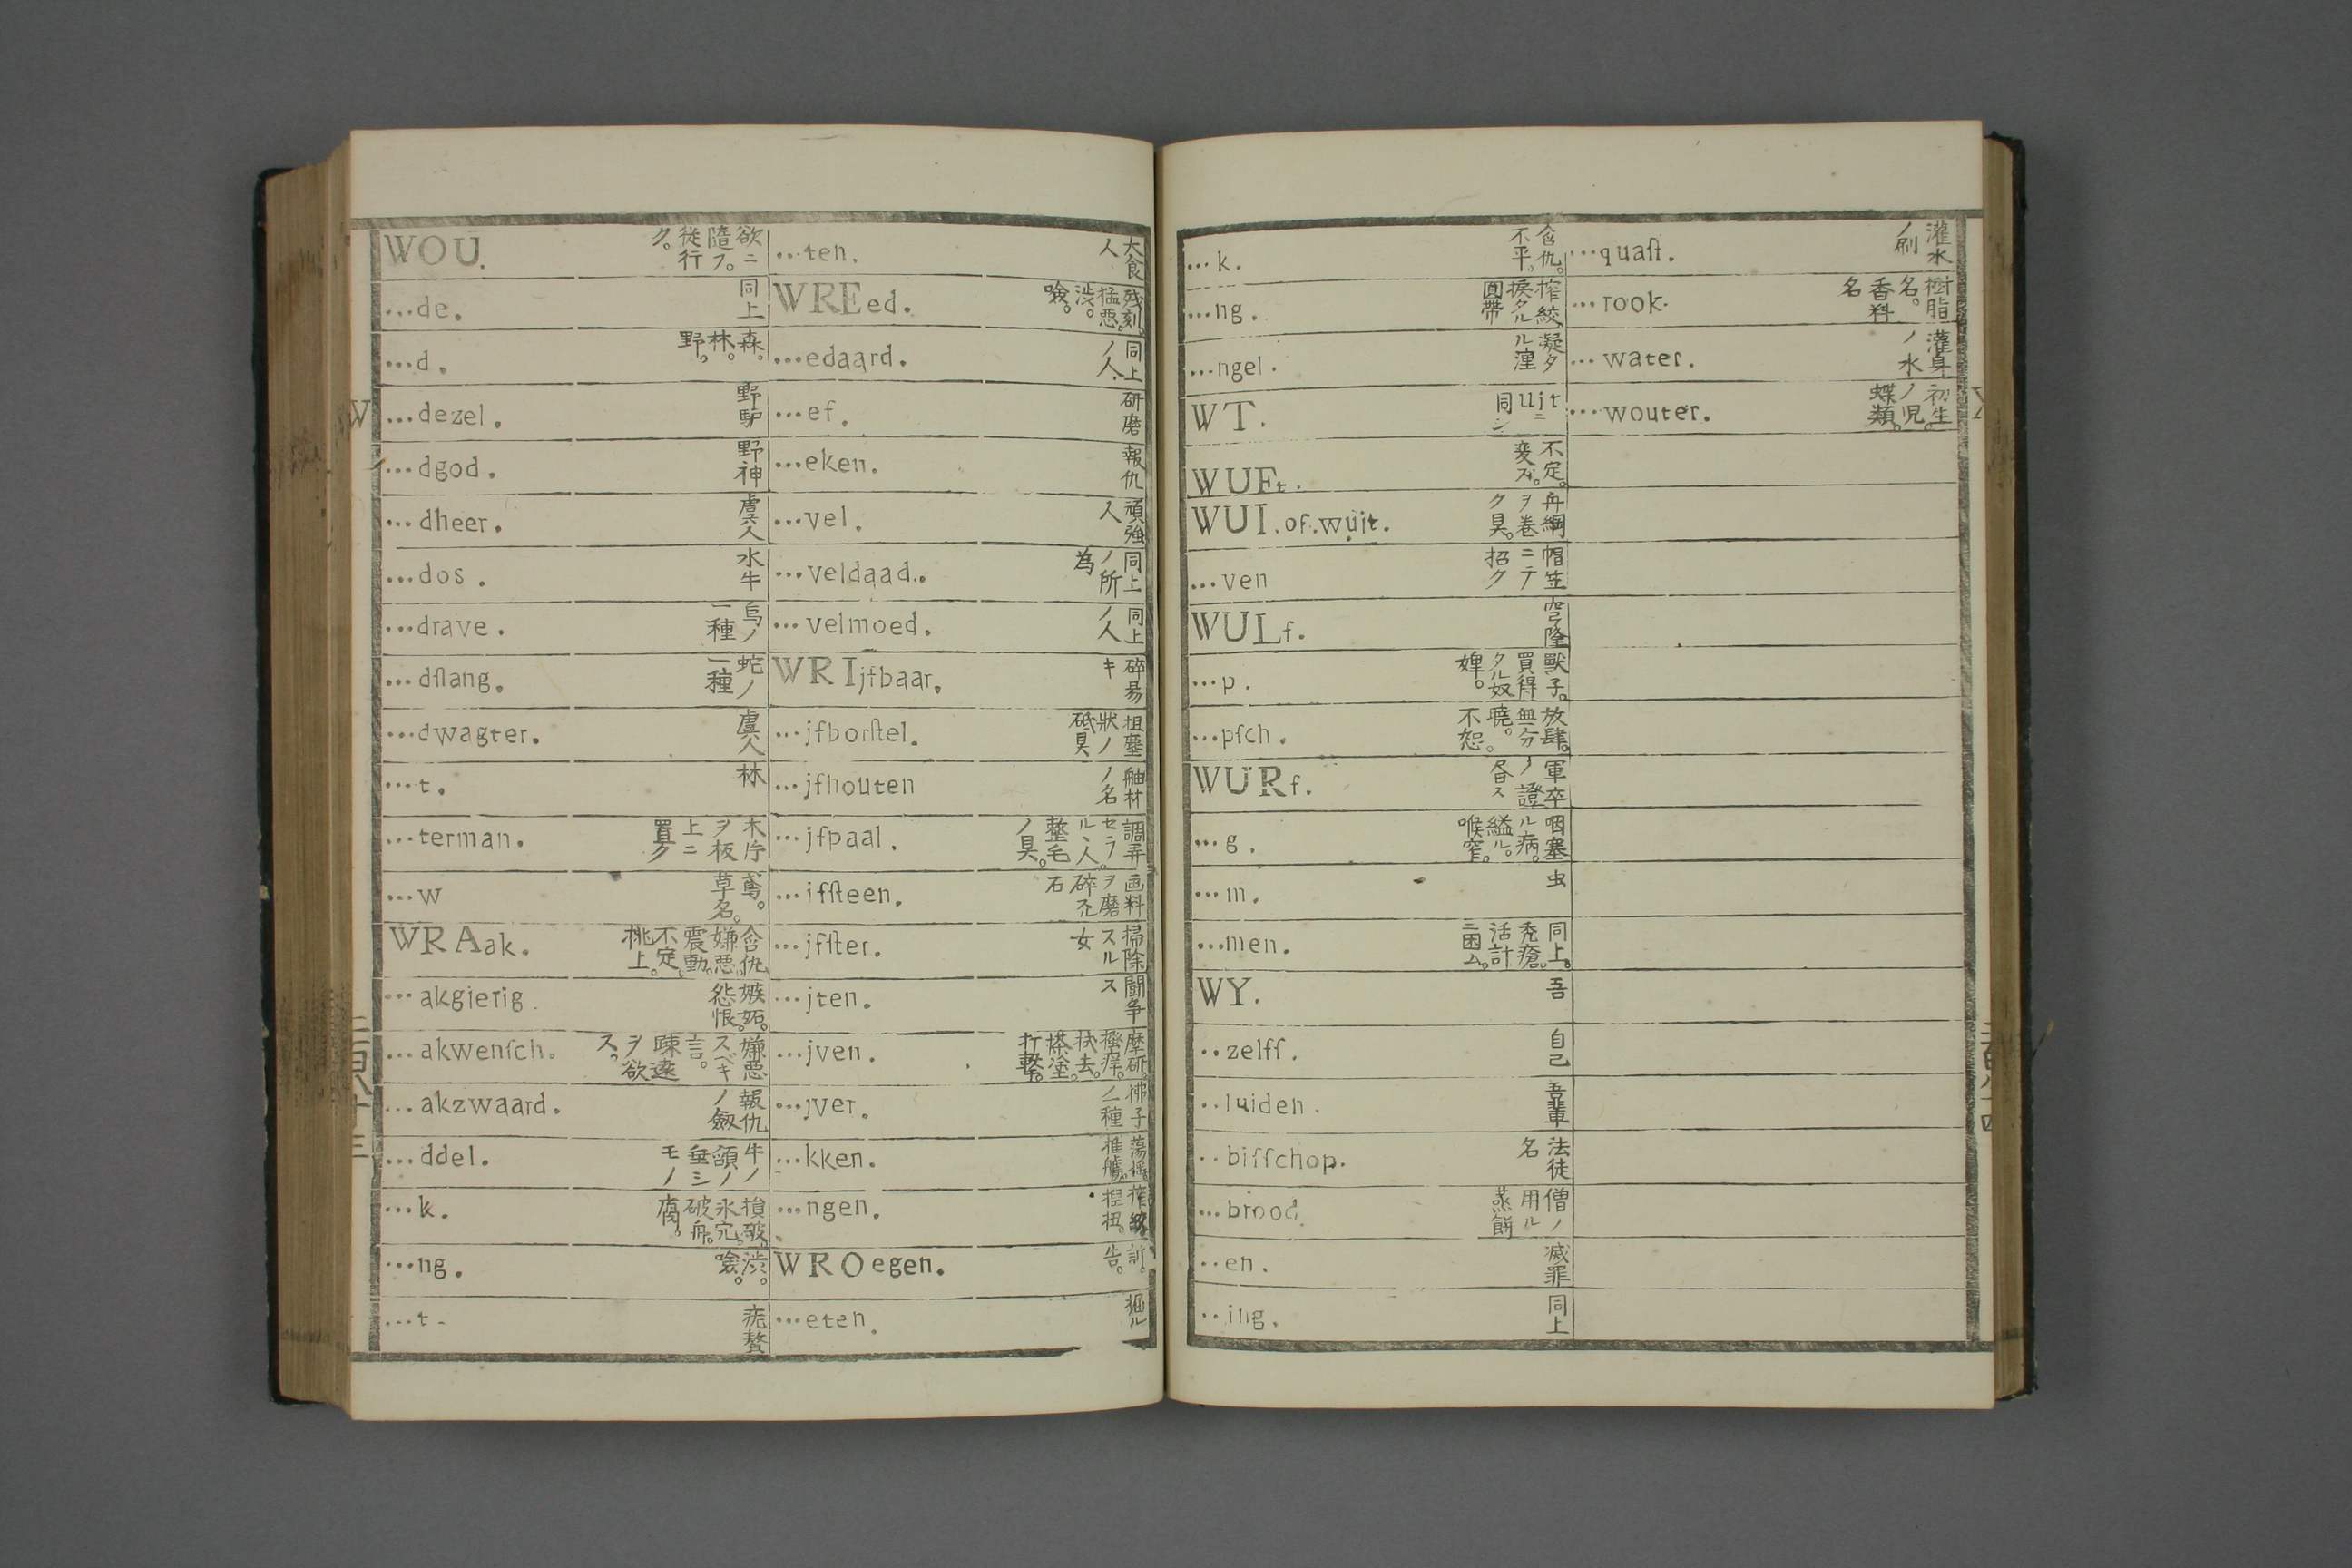 WOU. 欲ニ隨フ。従行ク。
...de. 同上
...d. 森。林。野。
...dezel. 野驴
...dgod. 野神
...dheer. 虞人
...dos. 水牛
...drave. 鳥ノ一種
...dſlang. 蛇ノ一種
...dwagter. 虞人
...t. 林
...terman. 木片ヲ板上ニ置ク
...w 鳶。草名。
WRAak. 含仇。嫌悪。震動。不定。桃上。
...akgierig. 嫉妬。怨恨。
...akwenſch. 嫌悪スベキ言。疎遠ヲ欲ス。
...akzwaard. 報仇ノ劔
...ddel. 牛ノ頷ノ垂シモノ
...k. 損破。氷穴。破舟。腐。
...ng. 渋。喰。
...t-
...ten. 大食人
WREed. 残刻。猛悪。渋。喰。
...edaard. 同上ノ人.
...ef. 研磨
...eken. 報仇
...vel. 頑強人
...veldaad.. 同上ノ所為
...velmoed. 同上ノ人
WRIjfbaar. 碎易キ
...jfborſtel.
...jfhouten 舳材ノ名
...jfpaal. 調弄セラルヽ人。整毛ノ具。
...ifſteen. 画料ヲ磨碎ス石
...jfſter. 掃除スル女
...jten. 闘争ス
...jven. 摩研。
...jver.
...kken.
...ngen.
WROegen. 訴。告。
...eten. 掘ル
W
三百八十三
...k. 含仇。不平。
...ng. 搾絞。捩タル圓帶
...ngel. 凝タル湩
WT. Uitニ同シ
WUFt. 不定。変ズ。
WUI.of.wuit. 舟綱ヲ巻ク具。
...ven 帽笠ニテ招ク
WULf. 穹隆
...p. 獸子。買得タル奴婢。
...pſch. 放肆。無分暁。不恕。
WURf. 軍卒ノ證
...g. 咽塞ル病。縊ル。喉窄。
...m. 虫
...men. 同上。禿瘡。活計ニ困ム。
WY. 吾
..zelfſ. 自己
..luiden. 吾輩
..biſſchop. 法徒名
...brood. 僧ノ用ル蒸餅
..en. 滅罪
..ing. 同上
...quaſt. 灌水ノ刷
...rook. 樹脂名。香料名
...water. 灌身ノ水
...wouter. 初生ノ児。蝶類。